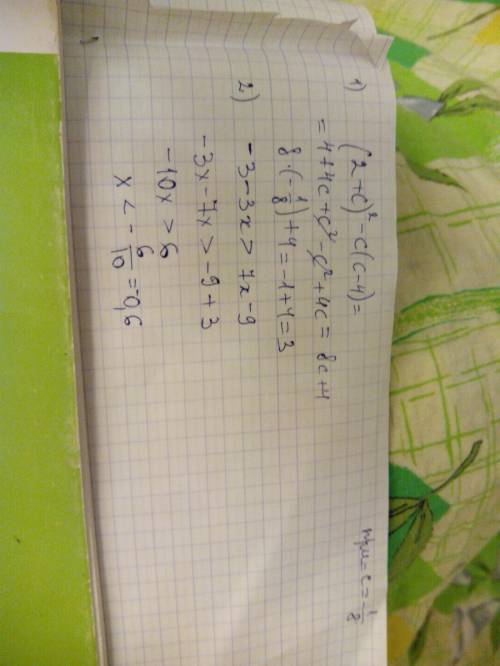 1) (2+c)² - c(c-4) =
= 4+4c+c²-c²+4c = 8c+4
при c = 1/8
8·(-1/8)+4 = -1+4 = 3
2) -3-3x > 7x-9
-3x-7x > -9+3
-10x > 6
x < -6/10 = -0,6